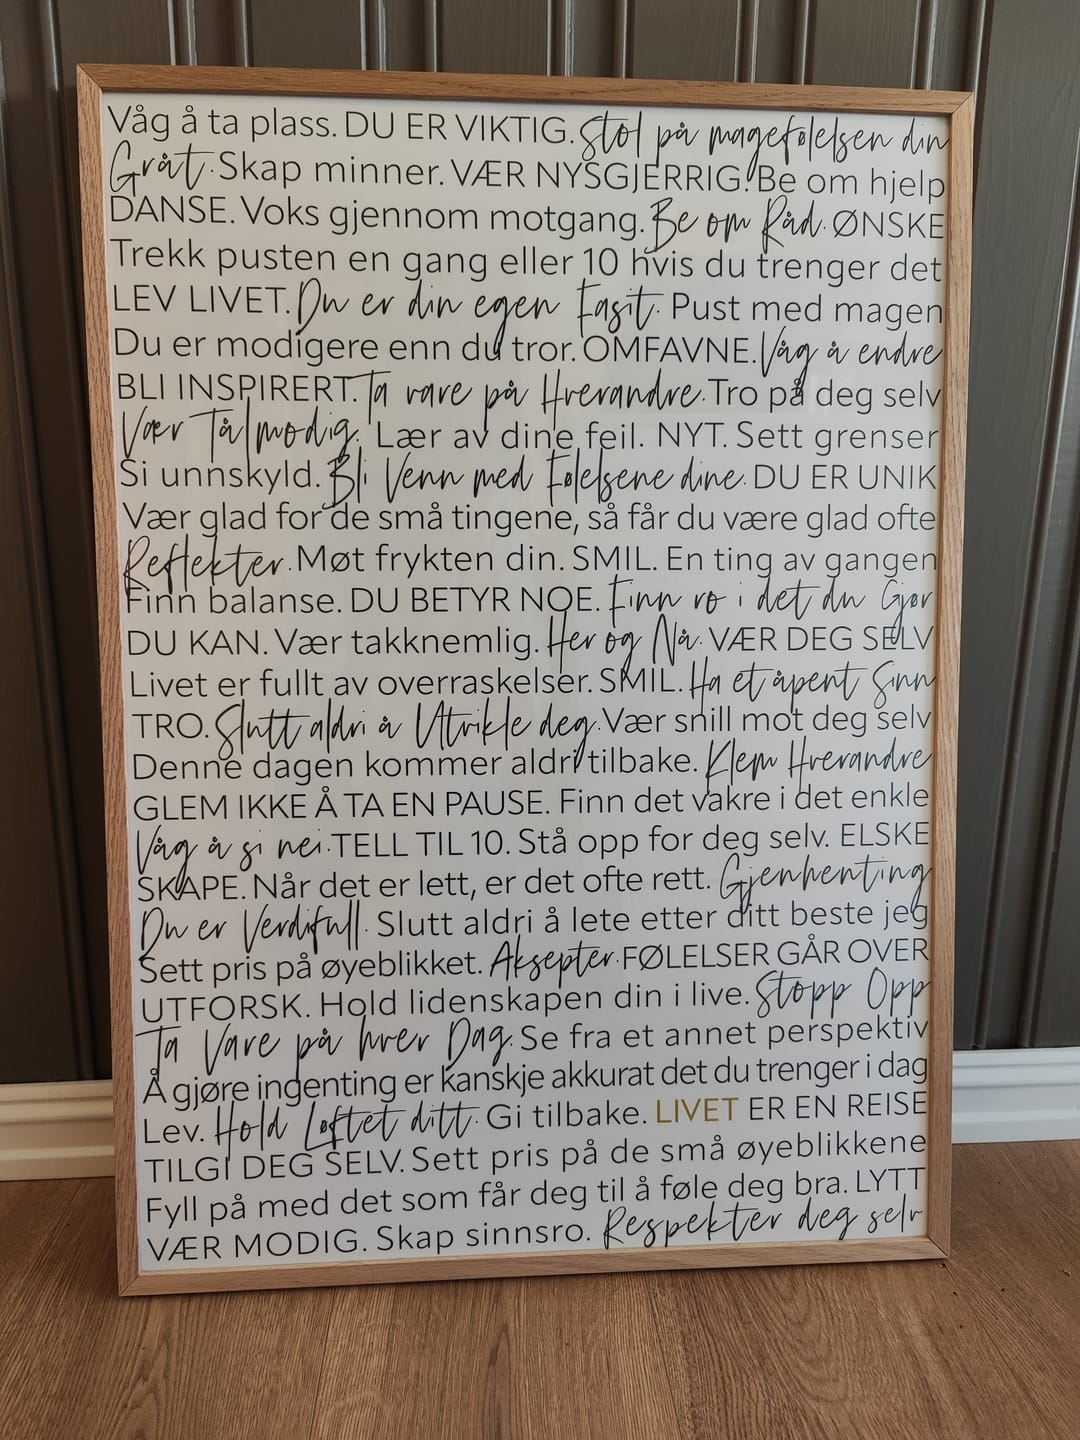 Våg å ta plass. DU ER VIKTIG. Stol på magefølelsen din
Gråt. Skap minner. VÆR NYSGJERRIG. Be om hjelp
DANSE. Voks gjennom motgang. Be om Råd. ØNSKE
Trekk pusten en gang eller 10 hvis du trenger det
LEV LIVET. Du er din egen Fasit. Pust med magen
Du er modigere enn du tror. OMFAVNE. Våg å endre
BLI INSPIRERT. Ta vare på Hverandre. Tro på deg selv
Vær Tålmodig. Lær av dine feil. NYT. Sett grenser
Si unnskyld. Bli Venn med Følelsene dine. DU ER UNIK
Vær glad for de små tingene, så får du være glad ofte
Reflekter. Møt frykten din. SMIL. En ting av gangen
Finn balanse. DU BETYR NOE. Finn ro i det du Gjør
DU KAN. Vær takknemlig. Her og Nå. VÆR DEG SELV
Livet er fullt av overraskelser. SMIL. Ha et åpent Sinn
TRO. Slutt aldri å Utvikle deg. Vær snill mot deg selv
Denne dagen kommer aldri tilbake. Klem Hverandre
GLEM IKKE Å TA EN PAUSE. Finn det vakre i det enkle
Våg å si nei. TELL TIL 10. Stå opp for deg selv. ELSKE
SKAPE. Når det er lett, er det ofte rett. Gjenhenting
Du er Verdifull. Slutt aldri å lete etter ditt beste jeg
Sett pris på øyeblikket. Aksepter. FØLELSER GÅR OVER
UTFORSK. Hold lidenskapen din i live. Stopp Opp
Ta Vare på hver Dag. Se fra et annet perspektiv
Å gjøre ingenting er kanskje akkurat det du trenger i dag
Lev. Hold Løftet ditt. Gi tilbake. LIVET ER EN REISE
TILGI DEG SELV. Sett pris på de små øyeblikkene
Fyll på med det som får deg til å føle deg bra. LYTT
VÆR MODIG. Skap sinnsro. Respekter deg selv